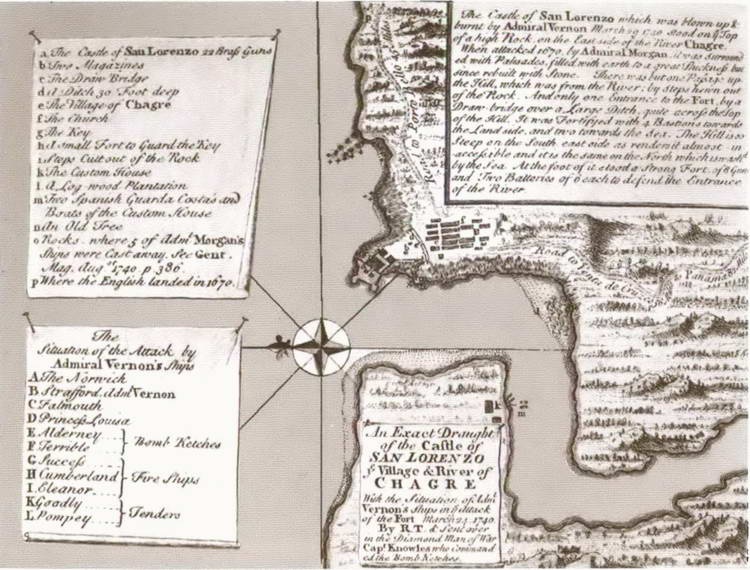 a The Castle of San Lorenzo 22 Brass Guns
b Two Magazines
c The Draw Bridge
d A Ditch 30 Foot deep
e The Village of Chagre
f The Church
g The Key
h A small Fort to Guard the Key
i Steps Cutt out of the Rock
k The Custom House
l A Log wood Plantation
m Two Spanish Guarda Costa's and
Boats of the Custom House
n An Old Tree
o Rocks where 5 of Adml. Morgan's
Ships were Cast away. See Gent.
Mag. Augst. 1740. p. 386.
p Where the English landed in 1670.
The
Situation of the Attack by
Admiral Vernon's Ships
A The Norwich
B Strafford Adml Vernon
C Falmouth
D Princess Louisa
E Alderney
F Terrible
Bomb Ketches
G Success
H Cumberland
I Eleanor
Fire Ships
K Goodly
L Pompey
Tenders
The Castle of San Lorenzo which was blown up &
burnt by Admiral Vernon March 29 1740 stood on ye Top
of a high Rock, on the East side of the River Chagre.
When attacked 1670, by Admiral Morgan, it was Surround
ed with Palisades, filled with earth to a great Thickness but
since rebuilt with Stone. There was but one Passage up
the Hill, which was from the River; by steps hewn out
of the Rock. And only one Entrance to the Fort, by a
Draw bridge over a Large Ditch, quite across the Top
of the Hill. It was Fortifyed with 4 Bastions towards
the Land side, and two towards the Sea. The Hill is so
Steep on the South east side as renders it almost in
accessible and it is the same on the North which is washt
by the Sea. At the foot of it stood a Strong Fort, of 8 Guns
and Two Batteries of 6 each to defend the Entrance
of the River
Road to Porto Bello
Road to Venta de Cruzes
Panama
k
m
An Exact Draught
of the Castle of
SAN LORENZO
ye Village & River of
CHAGRE
With the Situation of Adml.
Vernon's Ships in ye Attack
of the Fort March 24. 1740.
By R.T. & Sent over
in the Diamond Man of War
Capt. Knowles who Command
ed the Bomb Ketches.